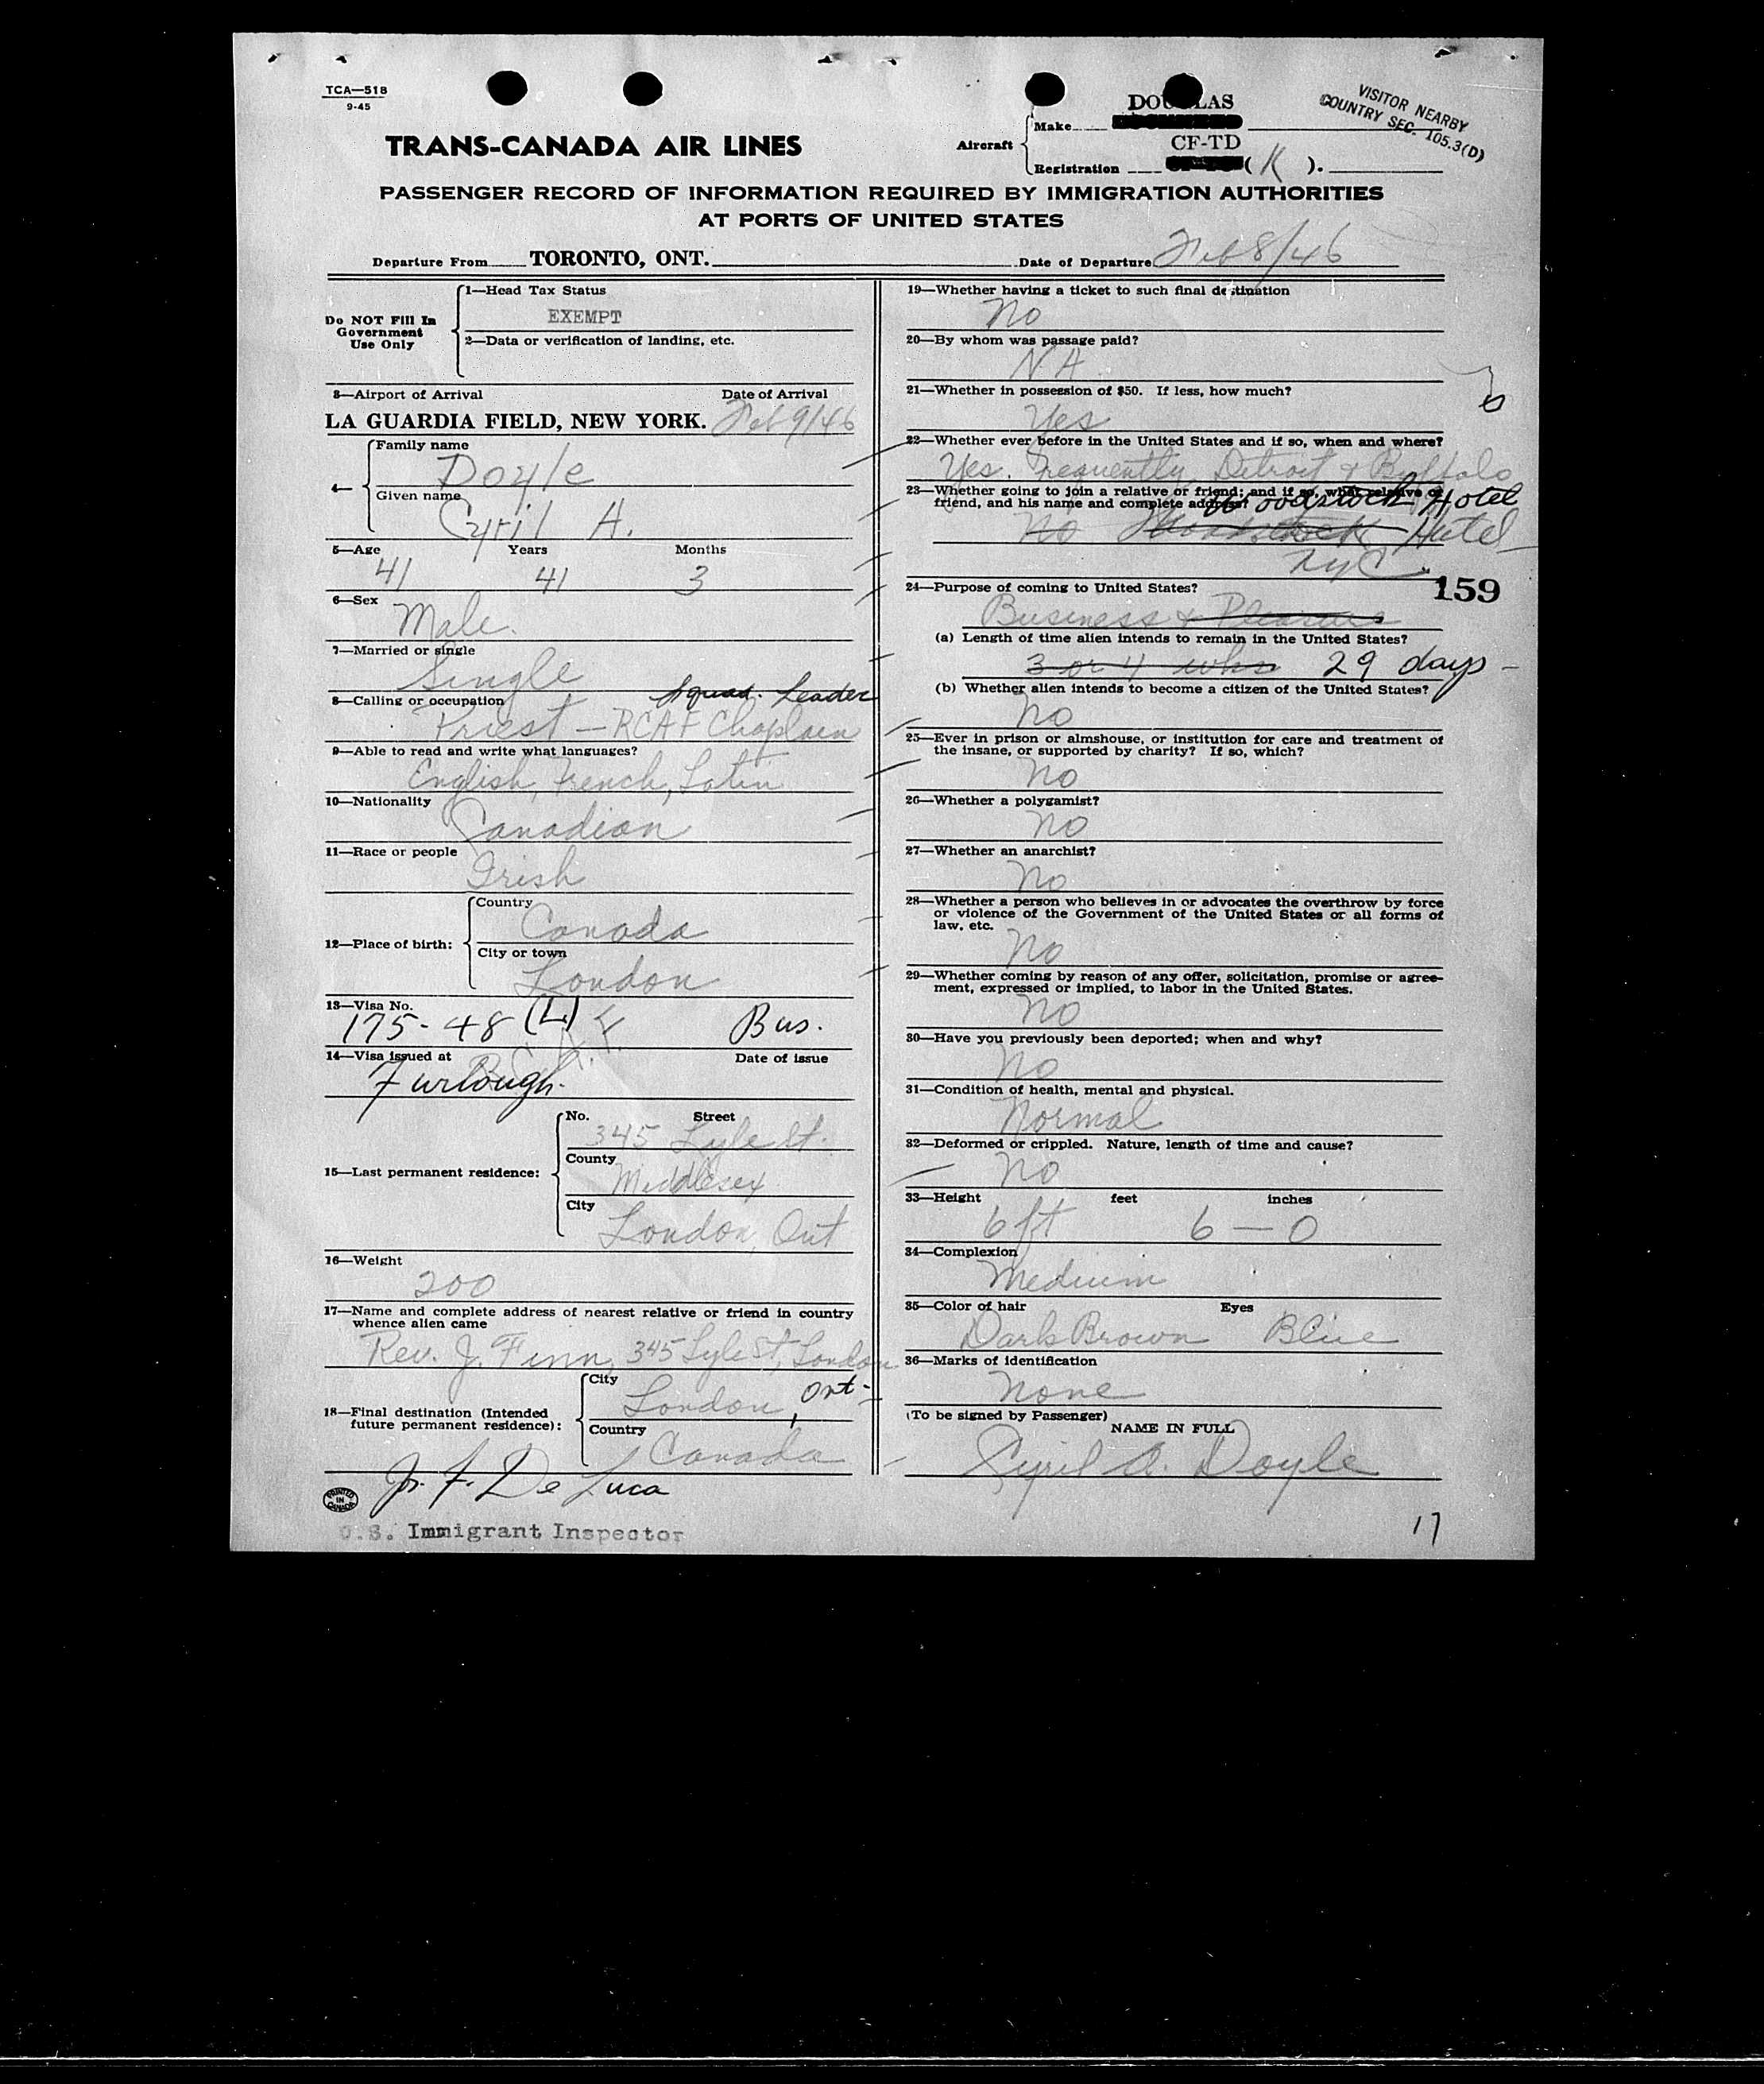 TCA—518
9-45
DOUGLAS
VISITOR NEARBY
COUNTRY SEC. 105.3(D)
Aircraft
Make
CF-TD
Registration (K).
TRANS-CANADA AIR LINES
PASSENGER RECORD OF INFORMATION REQUIRED BY IMMIGRATION AUTHORITIES
AT PORTS OF UNITED STATES
Departure From TORONTO, ONT. Date of Departure Feb 8/46
Do NOT Fill In
Government
Use Only
1—Head Tax Status
EXEMPT
2—Data or verification of landing, etc.
3—Airport of Arrival Date of Arrival
LA GUARDIA FIELD, NEW YORK. Feb 9/46
4—
Family name
Doyle
Given name
Cyril A.
5—Age Years Months
41 41 3
6—Sex
Male.
7—Married or single
Single
Squad. Leader
8—Calling or occupation
Priest — RCAF Chaplain
9—Able to read and write what languages?
English, French, Latin
10—Nationality
Canadian
11—Race or people
Irish
12—Place of birth:
Country
Canada
City or town
London
13—Visa No.
175-48 (L) Bus.
14—Visa issued at Date of issue
Furlough.
15—Last permanent residence:
No. Street
345 Lyle St.
County
Middlesex
City
London, Ont
16—Weight
200
17—Name and complete address of nearest relative or friend in country
whence alien came
Rev. J. Finn, 345 Lyle St, London
Ont-
18—Final destination (Intended
future permanent residence):
City
London,
Country
Canada
Jr. F. De Luca
PRINTED
IN
CANADA
U.S. Immigrant Inspector
19—Whether having a ticket to such final destination
No
20—By whom was passage paid?
NA
21—Whether in possession of $50. If less, how much?
Yes
22—Whether ever before in the United States and if so, when and where?
Yes. Frequently, Detroit & Buffalo
23—Whether going to join a relative or friend; and if so, what relative or
friend, and his name and complete address?
Woodstock Hotel
No Woodstock Hotel
NyC
159
24—Purpose of coming to United States?
Business & Pleasure
(a) Length of time alien intends to remain in the United States?
3 or 4 wks 29 days -
(b) Whether alien intends to become a citizen of the United States?
No
25—Ever in prison or almshouse, or institution for care and treatment of
the insane, or supported by charity? If so, which?
No
26—Whether a polygamist?
No
27—Whether an anarchist?
No
28—Whether a person who believes in or advocates the overthrow by force
or violence of the Government of the United States or all forms of
law, etc.
No
29—Whether coming by reason of any offer, solicitation, promise or agree-
ment, expressed or implied, to labor in the United States.
No
30—Have you previously been deported; when and why?
No
31—Condition of health, mental and physical.
Normal
32—Deformed or crippled. Nature, length of time and cause?
No
33—Height feet inches
6 ft 6 — 0
34—Complexion
Medium
35—Color of hair Eyes
Dark Brown Blue
36—Marks of identification
None
(To be signed by Passenger)
NAME IN FULL
Cyril A. Doyle
17